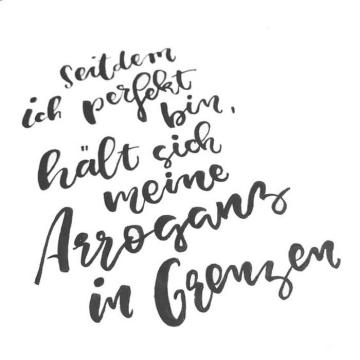 Seitdem
ich perfekt
bin,
hält sich
meine
Arroganz
in Grenzen